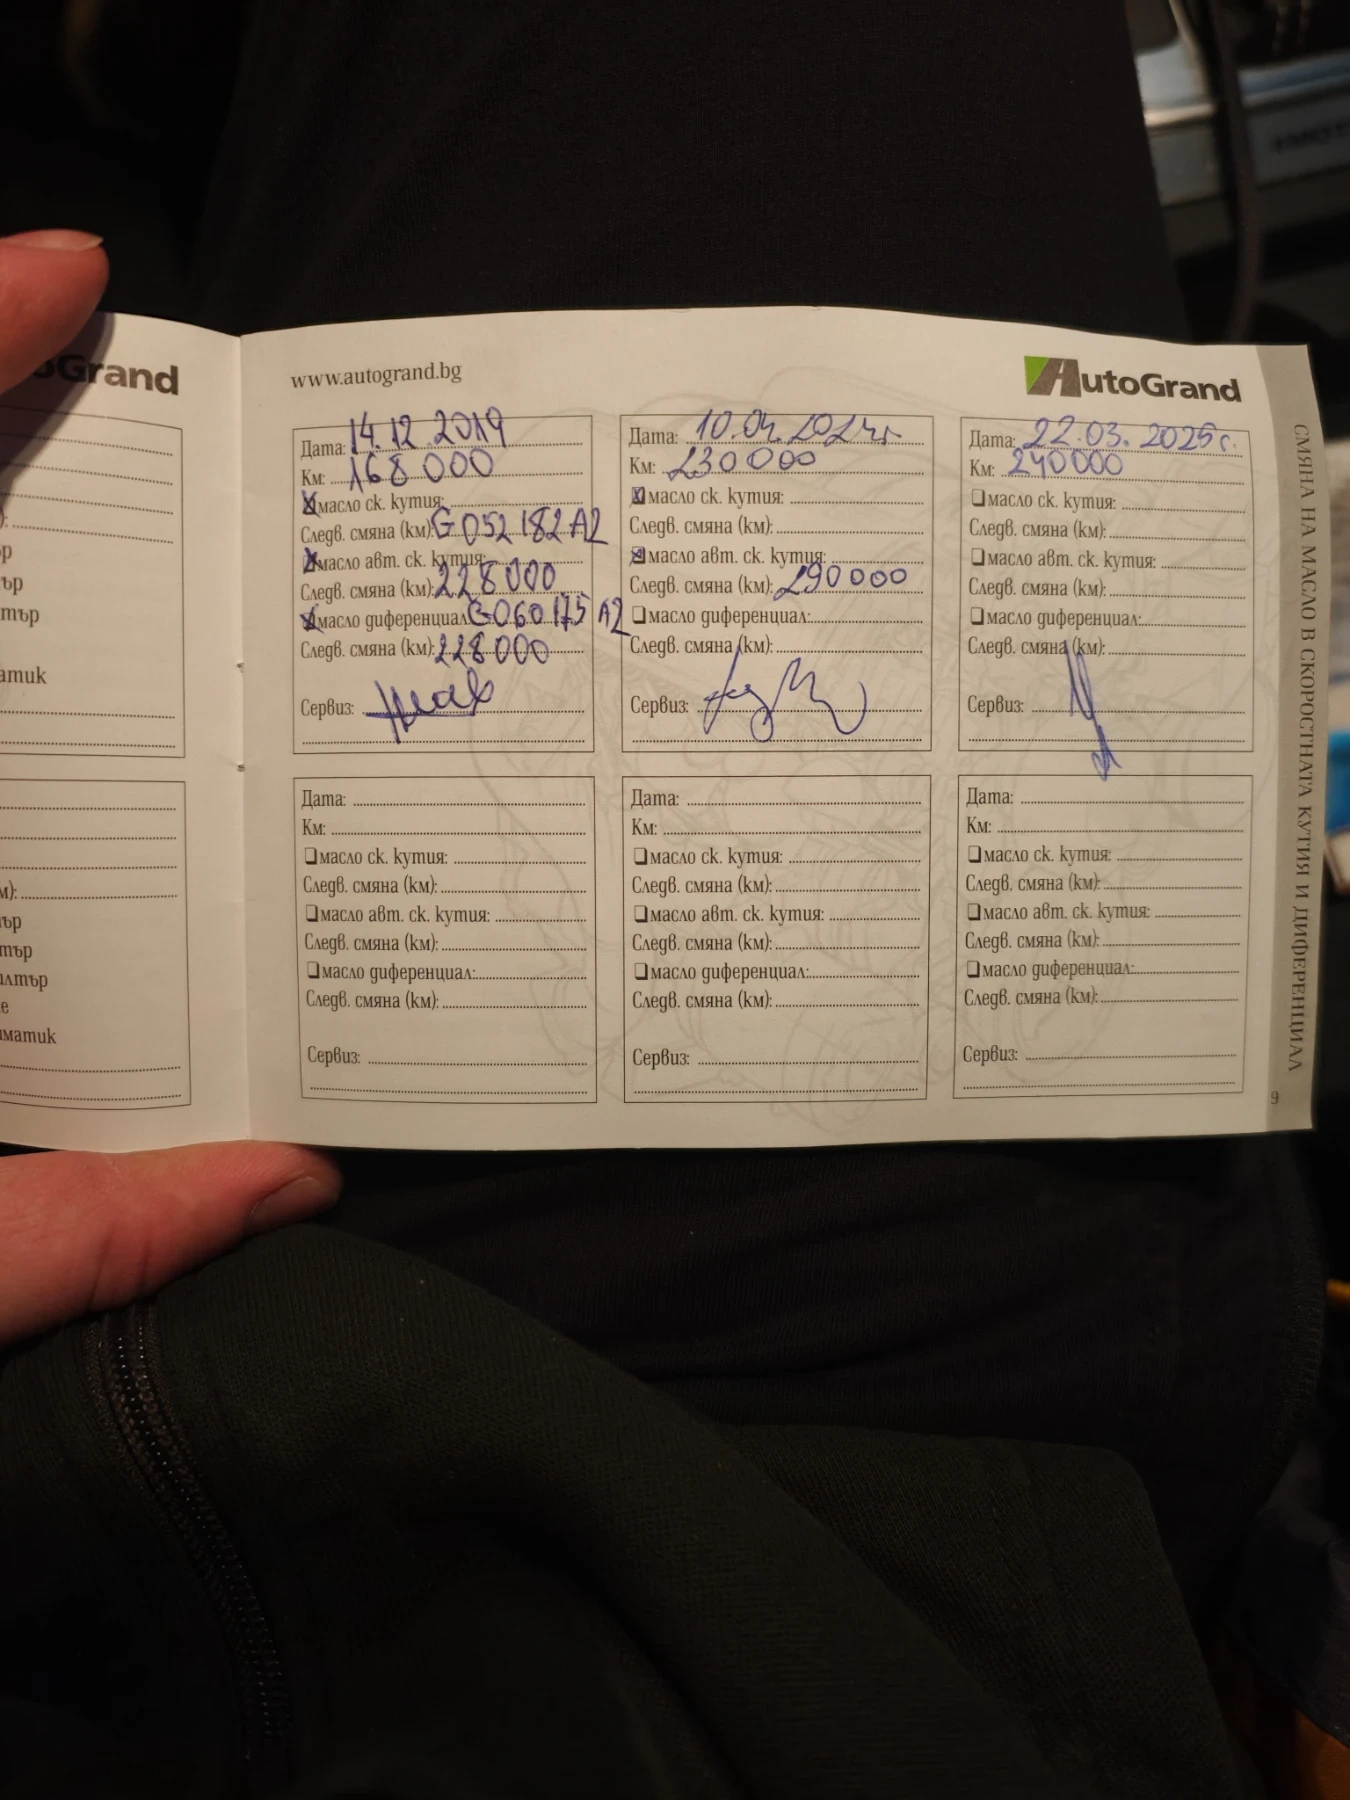 oGrand
www.autogrand.bg
AutoGrand
Дата: 14.12.2019
Км: 168 000
☒ масло ск. кутия:
Следв. смяна (км): G 052 182 A2
☒ масло авт. ск. кутия:
Следв. смяна (км): 228 000
☒ масло диференциал: G 060 175 A2
Следв. смяна (км): 228 000
Сервиз:
Дата: 10.04.2024г
Км: 230000
☒ масло ск. кутия:
Следв. смяна (км):
☒ масло авт. ск. кутия:
Следв. смяна (км): 290000
❏ масло диференциал:
Следв. смяна (км):
Сервиз:
Дата: 22.03.2025г.
Км: 240000
❏ масло ск. кутия:
Следв. смяна (км):
❏ масло авт. ск. кутия:
Следв. смяна (км):
❏ масло диференциал:
Следв. смяна (км):
Сервиз:
Дата:
Км:
❏ масло ск. кутия:
Следв. смяна (км):
❏ масло авт. ск. кутия:
Следв. смяна (км):
❏ масло диференциал:
Следв. смяна (км):
Сервиз:
Дата:
Км:
❏ масло ск. кутия:
Следв. смяна (км):
❏ масло авт. ск. кутия:
Следв. смяна (км):
❏ масло диференциал:
Следв. смяна (км):
Сервиз:
Дата:
Км:
❏ масло ск. кутия:
Следв. смяна (км):
❏ масло авт. ск. кутия:
Следв. смяна (км):
❏ масло диференциал:
Следв. смяна (км):
Сервиз:
СМЯНА НА МАСЛО В СКОРОСТНАТА КУТИЯ И ДИФЕРЕНЦИАЛ
9